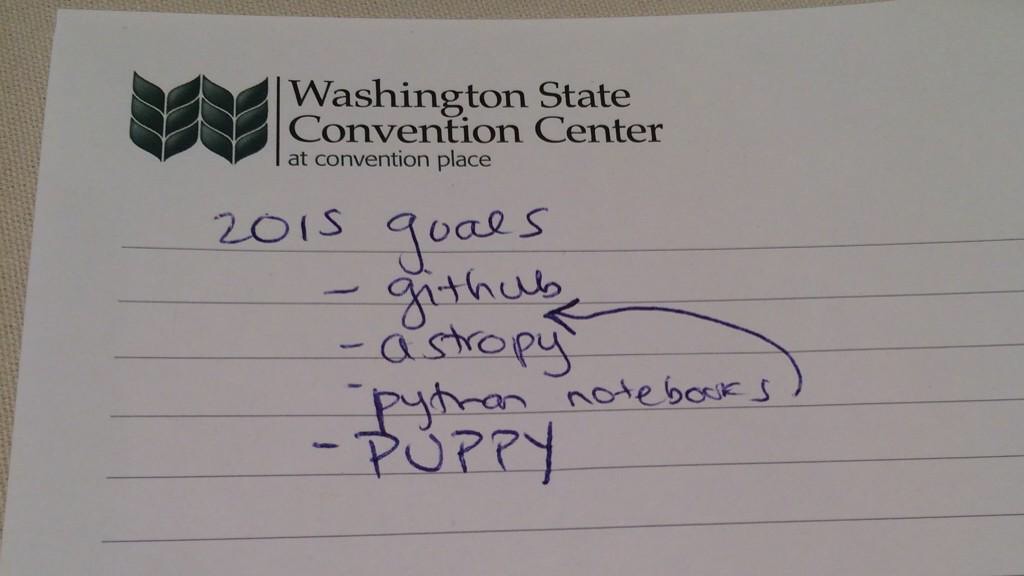 Washington State
Convention Center
at convention place
2015 goals
- github
- astropy
- python notebooks
- PUPPY